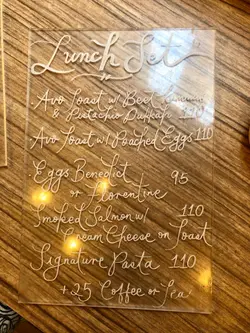 Lunch Set
Avo Toast w/ Beet Hummus
& Pistachio Dukkah 110
Avo Toast w/ Poached Eggs 110
Eggs Benedict 95
or Florentine
Smoked Salmon w/ 110
Cream Cheese on Toast
Signature Pasta 110
+25 Coffee or Tea